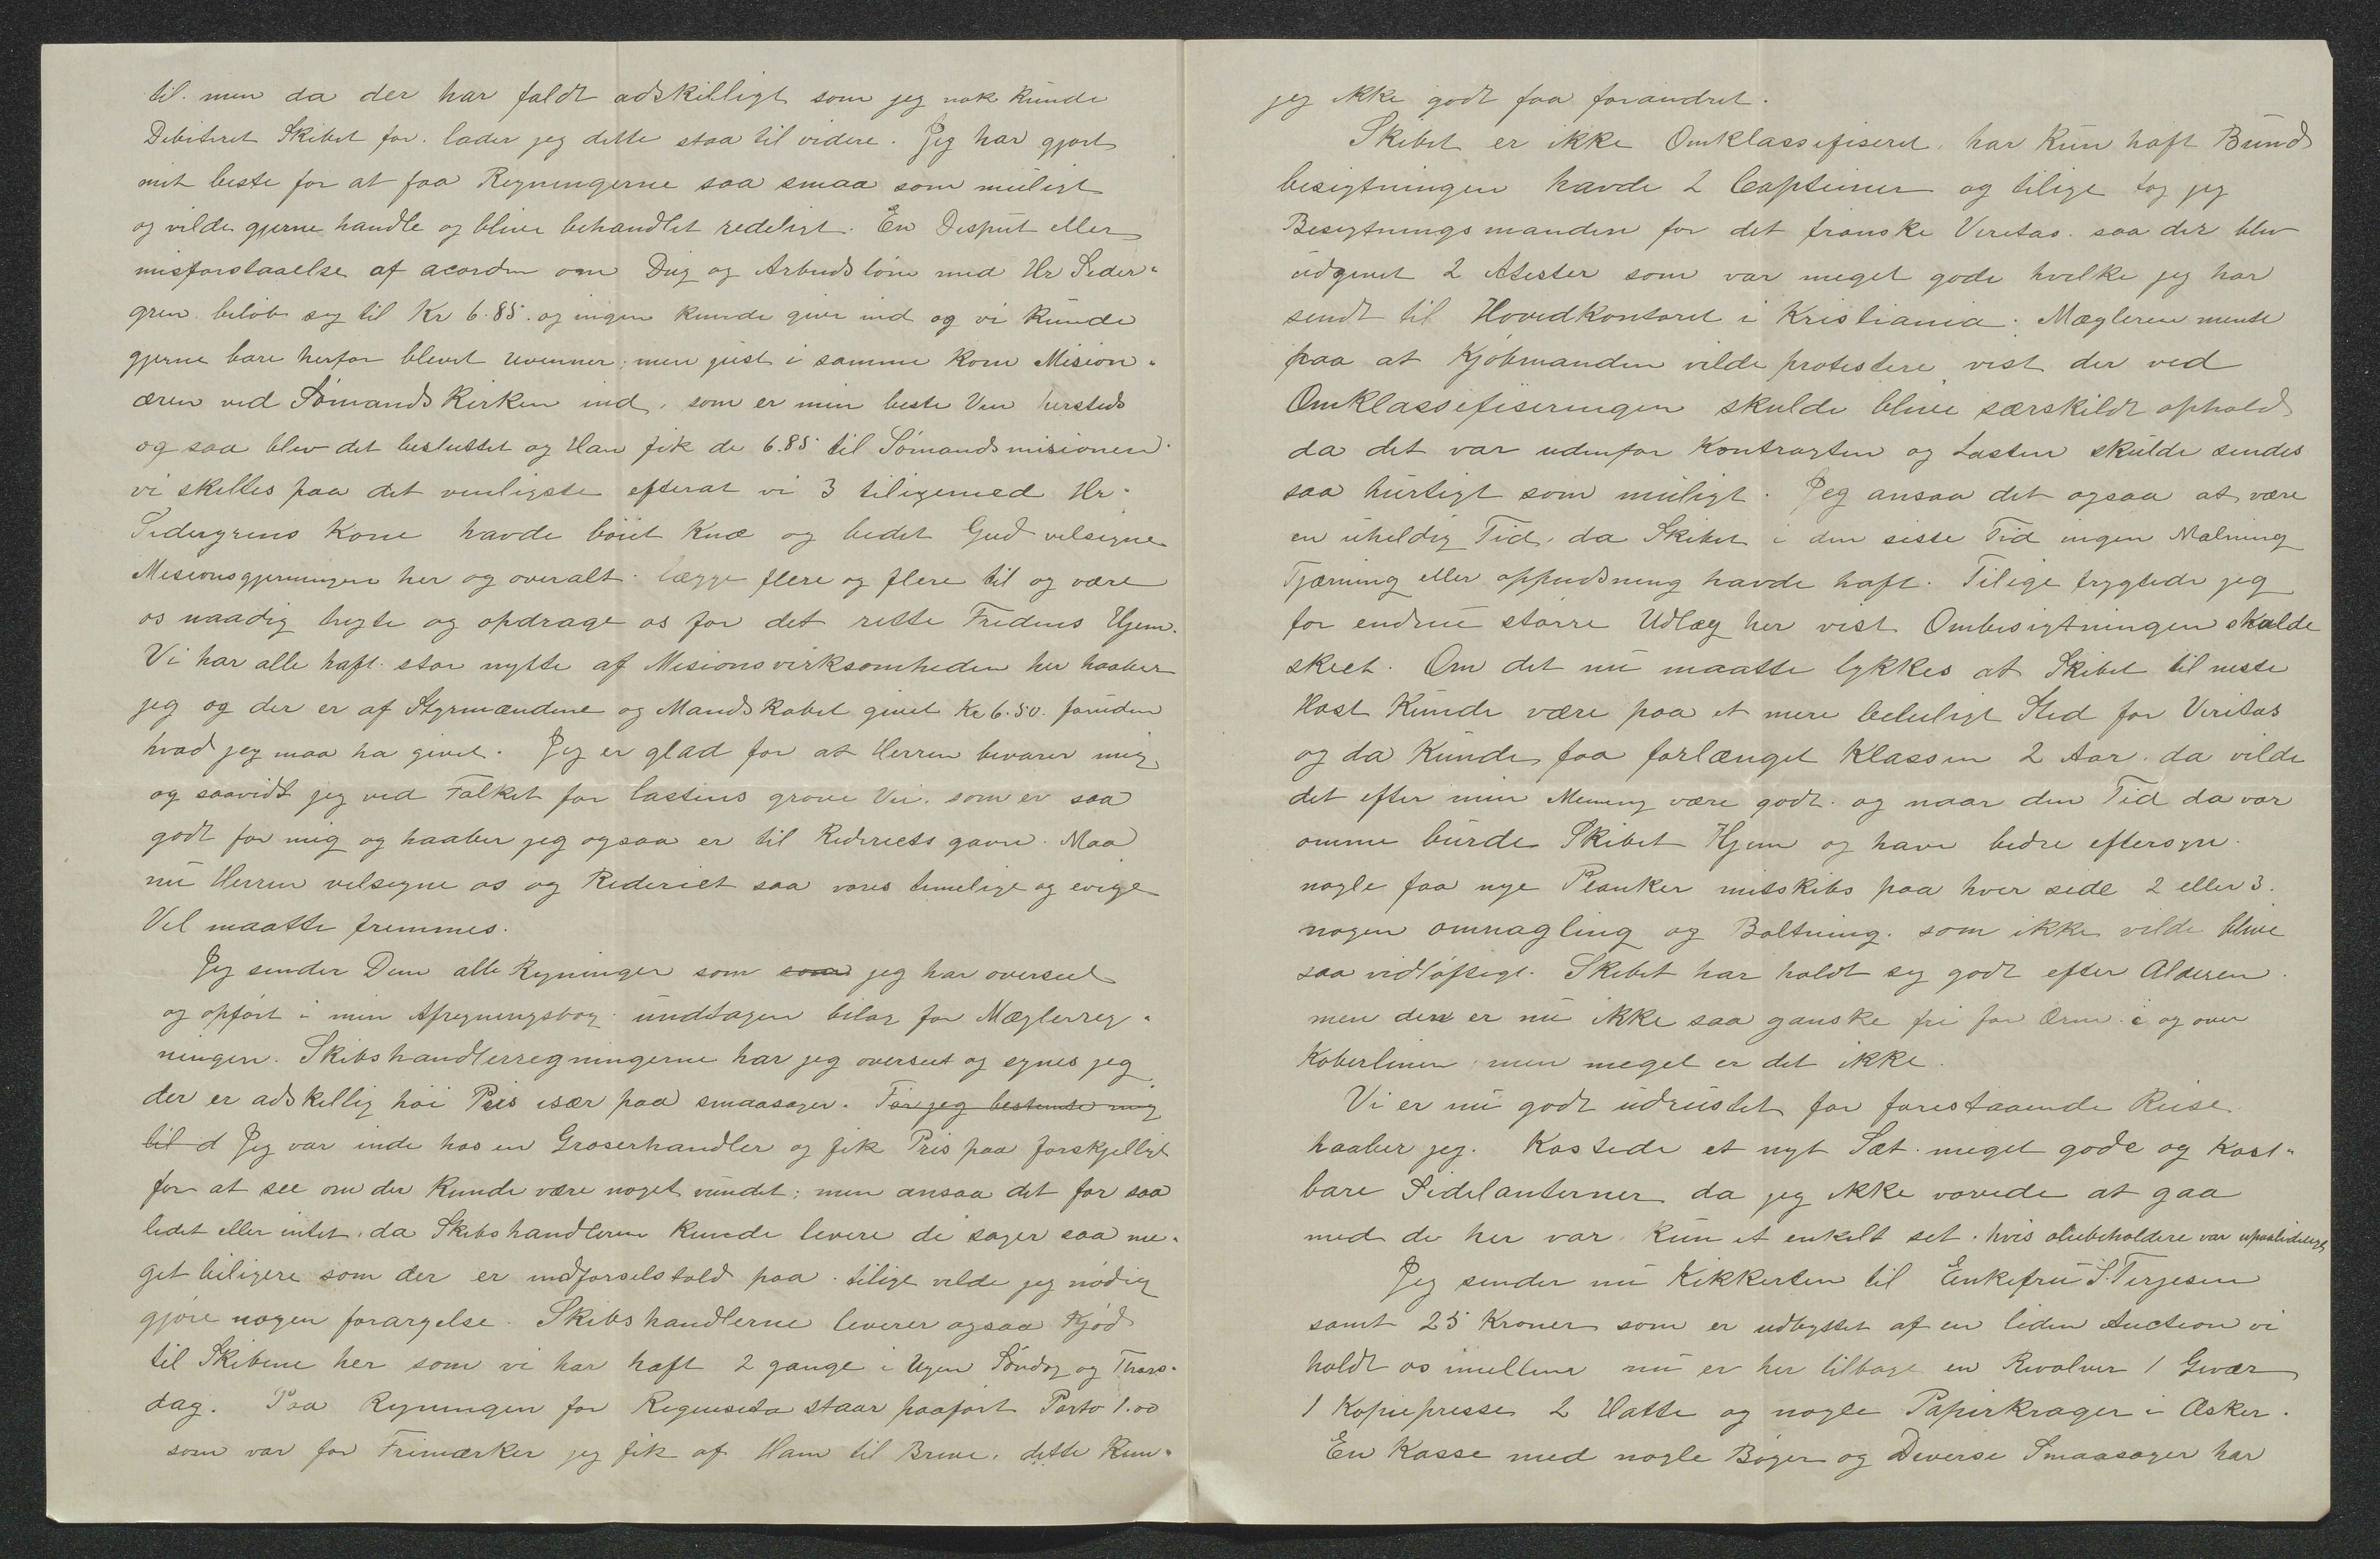 til. men da der har faldt adskilligt som jeg nok kunde
Debiteret Skibet for. lader jeg dette staa til videre. Jeg har gjort
mit beste for at faa Regningerne saa smaa som muligt
og vilde gjerne handle og blive behandlet redeligt. En Disput eller
misforstaaelse af acorden om Dug og Arbudslön med Hr Seder-
gren. belöb sig til Kr 6.85. og ingen kunde give ind og vi kunde
gjerne bare herfor blevet uvenner; men just i samme kom Mision-
æren ved Sömandskirken ind, som er min beste Ven hersteds
og saa blev det besluttet og Han fik de 6.85 til Sömandsmisionen.
vi skiltes paa det venligste efterat vi 3 tiligemed Hr.
Sedergrens Kone havde böiet Knæ og bedet Gud velsigne
Misionsgjerningen her og overalt. lægge flere og flere til og være
os naadig trygte og opdrage os for det rette Fredens Hjem.
Vi har alle haft stor nytte af Misionsvirksomheden her haaber
jeg og der er af Styrmændene og Mandskabet givet Kr 6.50. foruden
hvad jeg maa ha givet. Jeg er glad for at Herren bevarer mig
og saavidt jeg ved Falket for lastens grove Vei. som er saa
godt for mig og haaber jeg ogsaa er til Rederiets gavn. Maa
nu Herren velsigne os og Rederiet saa vores timelige og evige
Vel maatte fremmes.
Jeg sender Dem alle Regninger som som jeg har overseet
og opfört i min Afregningsbog. undtagen bilag for Mæglerreg-
ningen. Skibshandlerregningerne har jeg overseet og synes jeg
der er adskillig höi Pris især paa smaasager. Før jeg bestemte mig
til d Jeg var inde hos en Groserhandler og fik Pris paa forskjelligt
for at see om der kunde være noget vundet; men ansaa det for saa
lidet eller intet, da Skibshandleren kunde levere de sager saa me-
get biligere som der er indförselstold paa. tilige vilde jeg nödig
gjöre nogen forargelse. Skibshandlerne leverer ogsaa Kjöd
til Skibene her som vi har haft 2 gange i Ugen Söndag og Thors-
dag. Paa Regningen for staar paafört Porto 1.00
som var for Frimærker jeg fik af Ham til Breve. dette kun-
jeg ikke godt faa forandret.
Skibet er ikke Omklassifiseret. har kun haft Bund
besigtningen havde 2 Capteiner og tilige tog jeg
Besigtningsmanden for det franske Veritas. saa der blev
udgivet 2 Atester som var meget gode hvilke jeg har
sendt til Hovedkontoret i Kristiania. Mægleren mente
paa at Kjöbmanden vilde protestere vist der ved
Omklassifiseringen skulde blive særskildt ophold
da det var udenfor Kontragten og Lasten skulde sendes
saa hurtigt som muligt. Jeg ansaa det ogsaa at være
en uheldig Tid, da Skibet i den siste Tid ingen Malning
Tjærning eller oppudsning havde haft. Tilige frygtede jeg
for endnu större Udlæg her vist Ombesigtningen skulde
skeet. Om det nu maatte lykkes at Skibet til neste
Höst kunde være paa et mere beleiligt Sted for Veritas
og da kunde faa forlænget Klassen 2 Aar. da vilde
det efter min Mening være godt. og naar den Tid da var
omme burde Skibet Hjem og have bedre eftersyn.
nogle faa nye Planker mitskibs paa hver side 2 eller 3.
nogen omnagling og Boltning. som ikke vilde blive
saa vidlöftigt. Skibet har holdt sig godt efter Alderen.
men den er nu ikke saa ganske fri for Orm. i og over
Koberlinen men meget er det ikke.
Vi er nu godt udrustet for forestaaende Reise.
haaber jeg. Kostede et nyt Sæt. meget gode og kost-
bare Sidelanterner da jeg ikke vovede at gaa
med de her var kun et enkelt set. hvis oliebeholdere var upaalideligt
Jeg sender nu Kikkerten til Enkefru S. Terjesen
samt 25 Kroner som er udbyttet af en liden Auction vi
holdt os imellem nu er her tilbage en Revolver 1 Gevær
1 Kopiepresse 2 Hatte og nogle Papirkrager i Æsker.
En Kasse med nogle Böger og Diverse Smaasager har